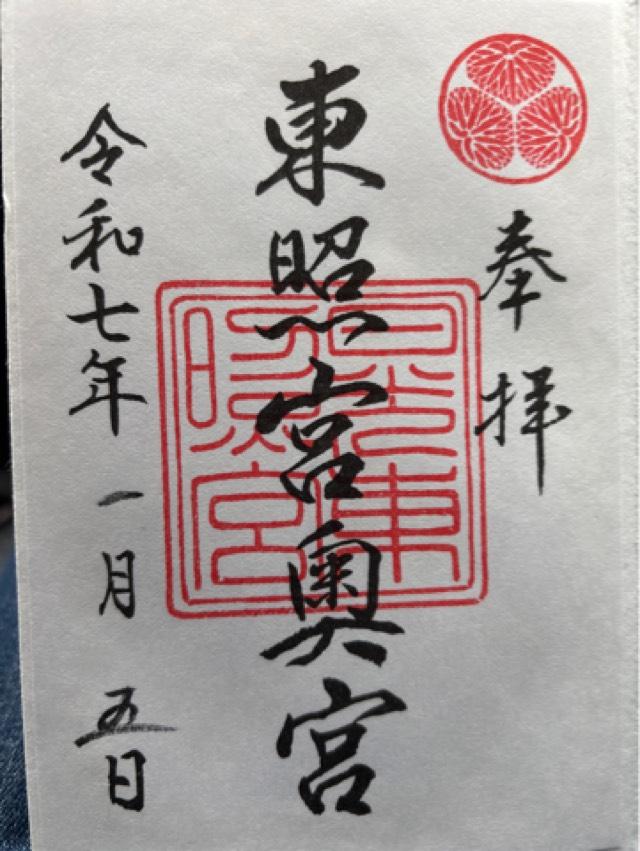 奉拝
東照宮奥宮
日光東照宮
令和七年一月五日